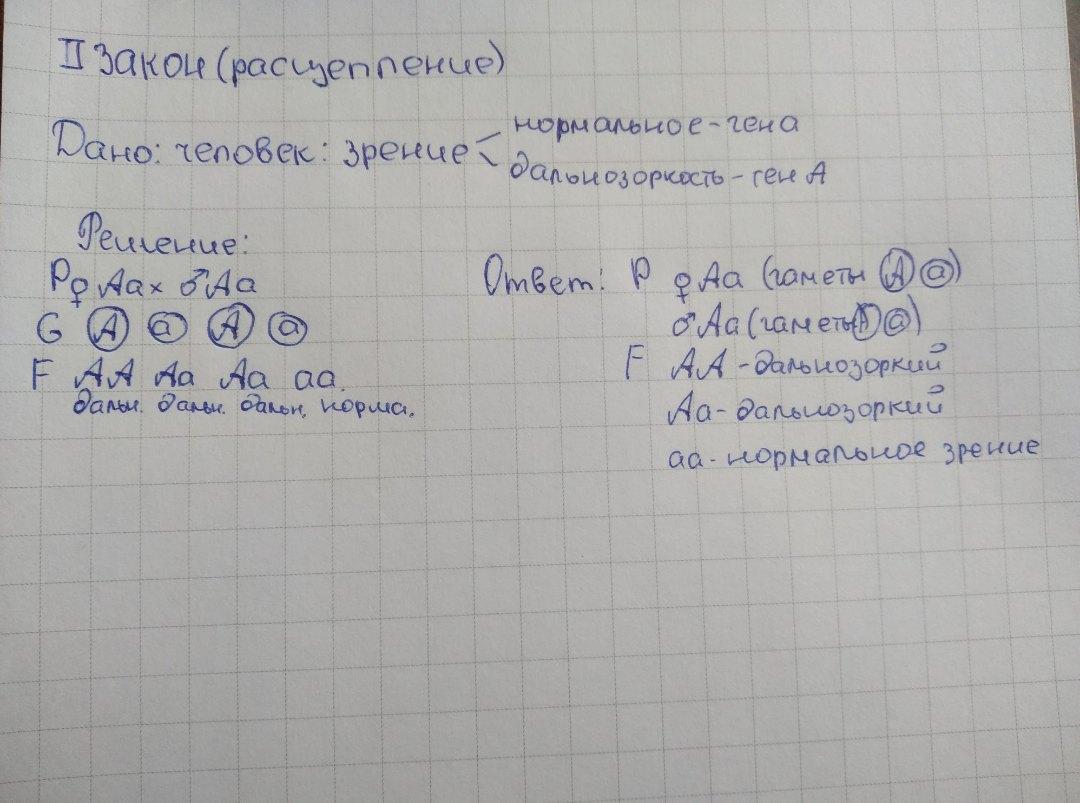 II закон (расщепление)
Дано: человек: зрение < нормальное - ген а
дальнозоркость - ген А
Решение:
P ♀ Аа × ♂ Аа
G А а А а
F АА Аа Аа аа.
дальн. дальн. дальн. норма.
Ответ: P ♀ Аа (гаметы А а)
♂ Аа (гаметы А а)
F АА - дальнозоркий
Аа - дальнозоркий
аа - нормальное зрение